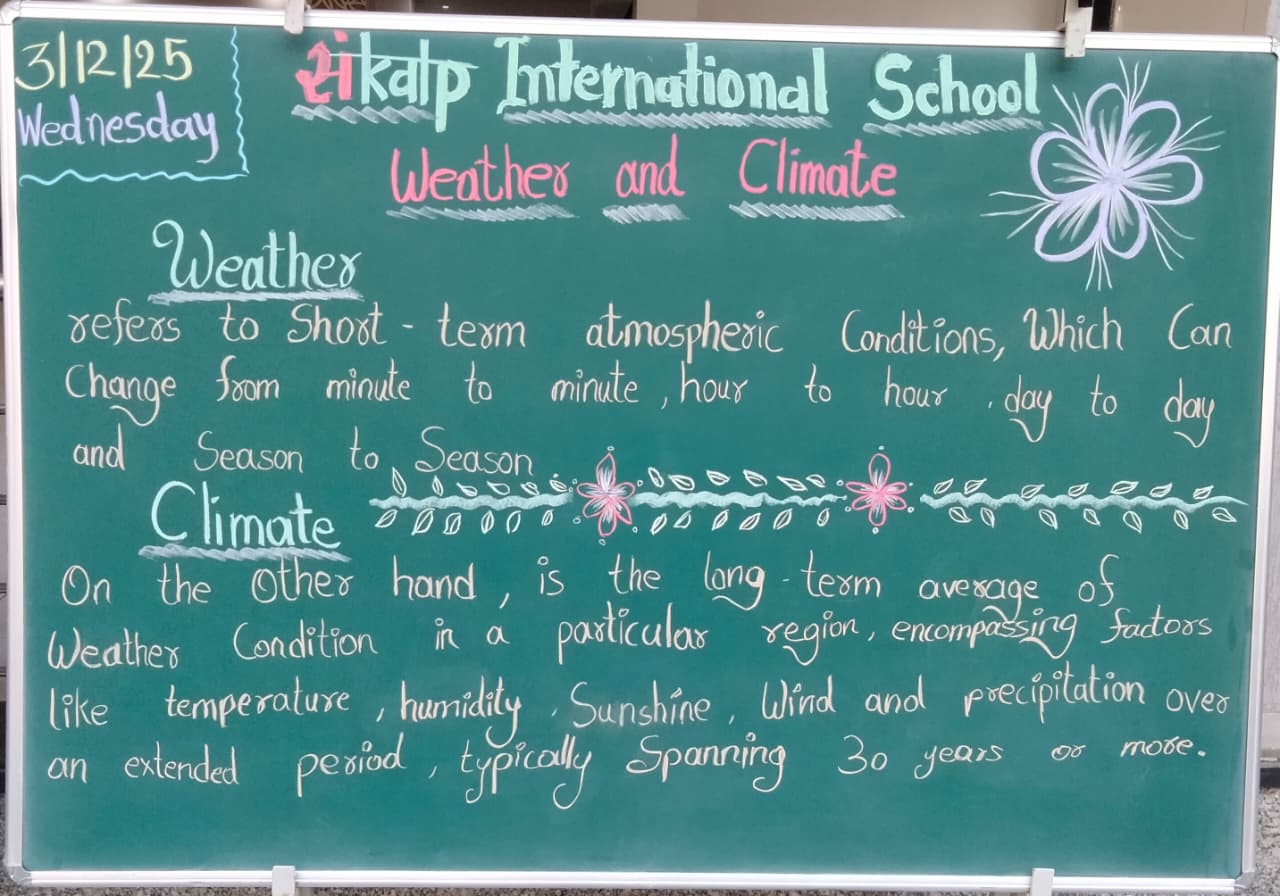 3/12/25
Wednesday
संकल्प International School
Weather and Climate
Weather
refers to Short - term atmospheric Conditions, Which Can
Change from minute to minute, hour to hour, day to day
and Season to Season.
Climate
On the Other hand, is the long-term average of
Weather Condition in a particular region, encompassing factors
like temperature, humidity, Sunshine, Wind and precipitation over
an extended period, typically Spanning 30 years or more.